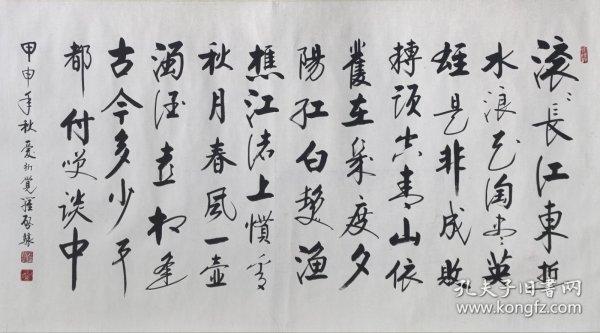 滚々長江東逝
水浪花淘盡英
雄是非成敗
轉頭空青山依
舊在幾度夕
陽紅白髮漁
樵江渚上慣看
秋月春風一壺
濁酒喜相逢
古今多少事
都付笑談中
甲申年秋愛新覺羅啟驤
孔夫子旧书网
www.kongfz.com